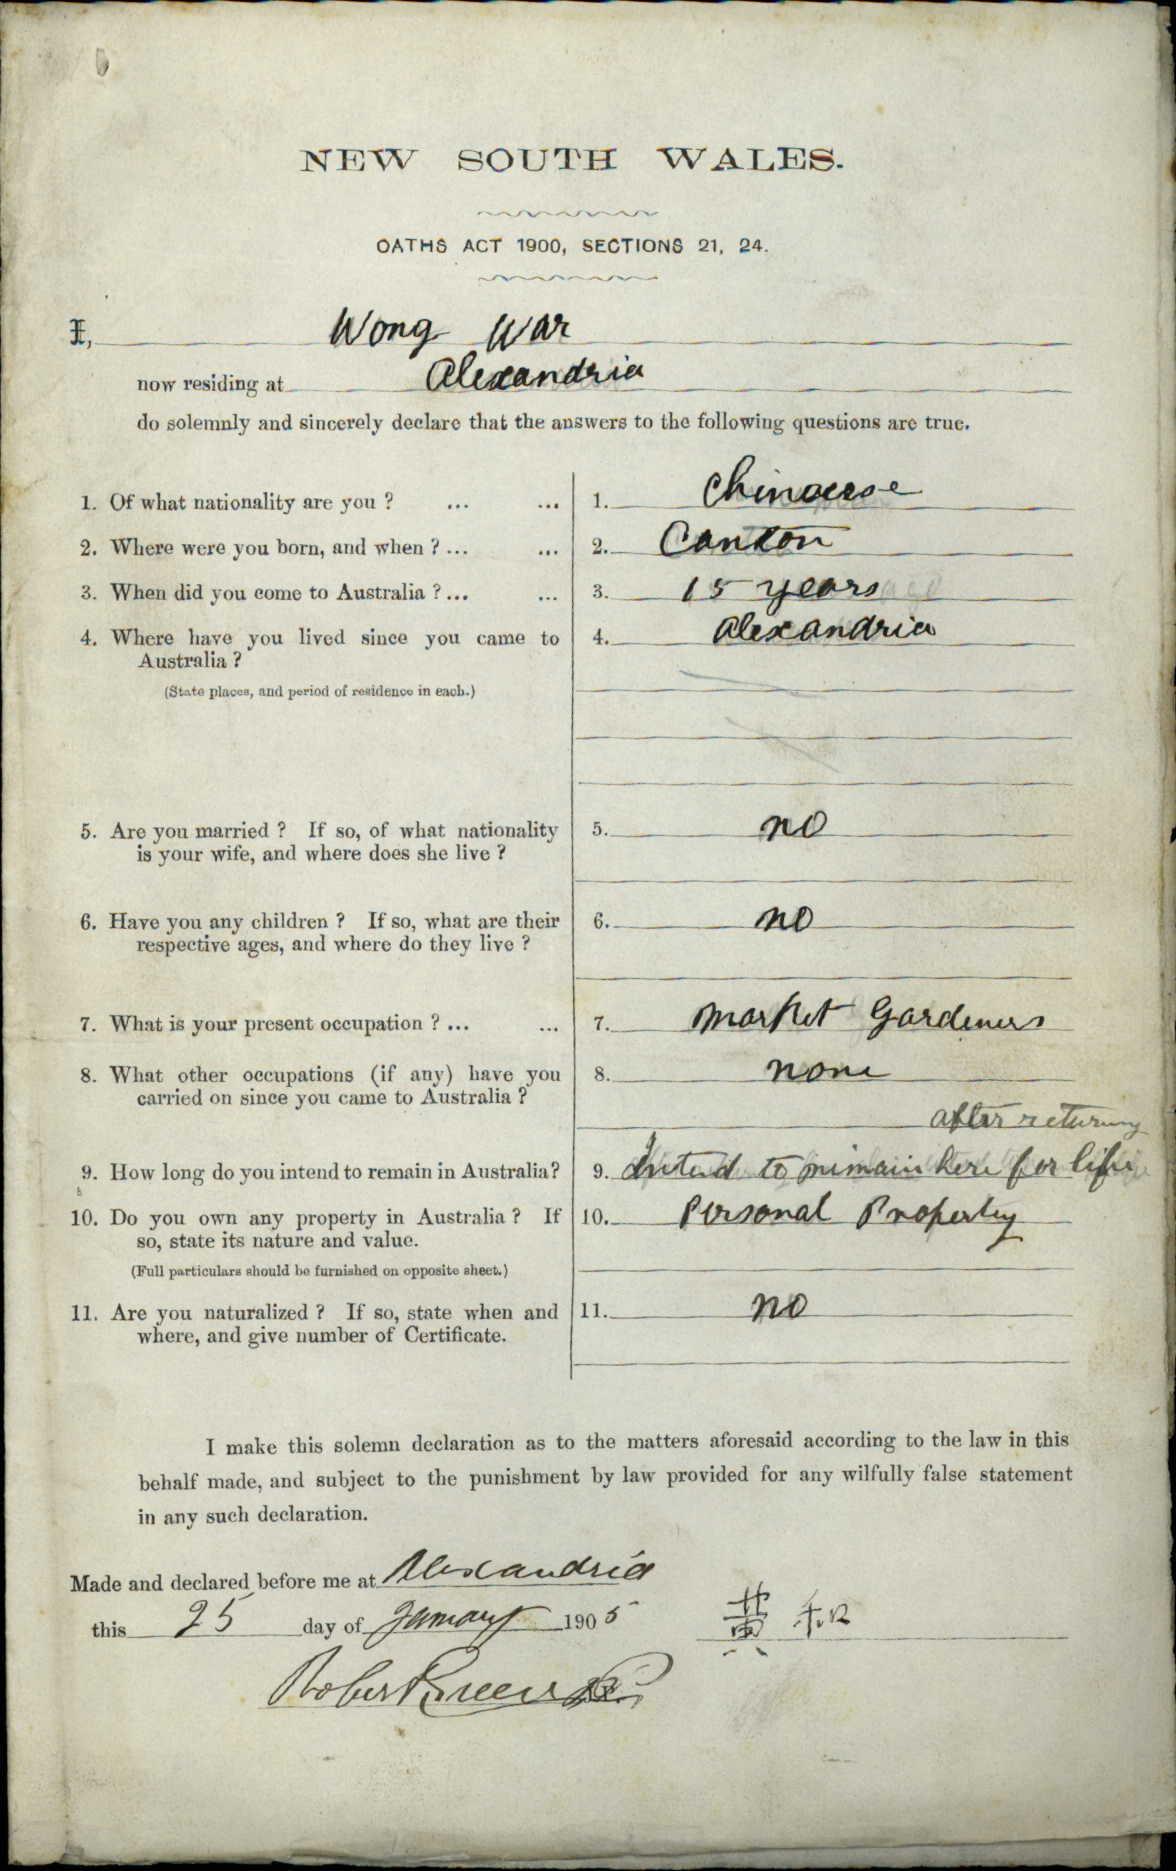 NEW SOUTH WALES.
OATHS ACT 1900, SECTIONS 21, 24.
I, Wong War
now residing at Alexandria
do solemnly and sincerely declare that the answers to the following questions are true.
1. Of what nationality are you ? ... ... 1. Chinaese
2. Where were you born, and when ? ... ... 2. Canton
3. When did you come to Australia ? ... ... 3. 15 years
4. Where have you lived since you came to 4. Alexandria
Australia ?
(State places, and period of residence in each.)
5. Are you married ? If so, of what nationality 5. no
is your wife, and where does she live ?
6. Have you any children ? If so, what are their 6. no
respective ages, and where do they live ?
7. What is your present occupation ? ... ... 7. Market Gardeners
8. What other occupations (if any) have you 8. none
carried on since you came to Australia ?
after returning
9. How long do you intend to remain in Australia? 9. Intend to remain here for life
10. Do you own any property in Australia ? If 10. Personal Property
so, state its nature and value.
(Full particulars should be furnished on opposite sheet.)
11. Are you naturalized ? If so, state when and 11. no
where, and give number of Certificate.
I make this solemn declaration as to the matters aforesaid according to the law in this
behalf made, and subject to the punishment by law provided for any wilfully false statement
in any such declaration.
Made and declared before me at Alexandria
this 25 day of January 1905 黄和
Robert Green